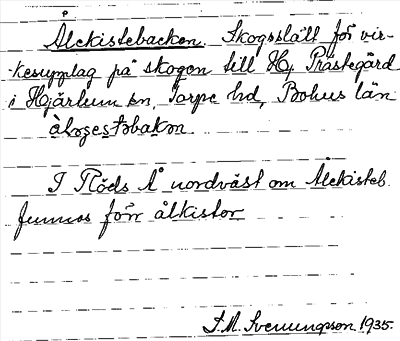 Ålekistebacken. Skogsslätt för vir-
kesupplag på skogen till Hj Prästegård
i Hjärtum sn, Torpe hd, Bohus län
I Röds Å nordväst om Ålekisteb.
funnos förr ålkistor
J. M. Svenungsson 1935.